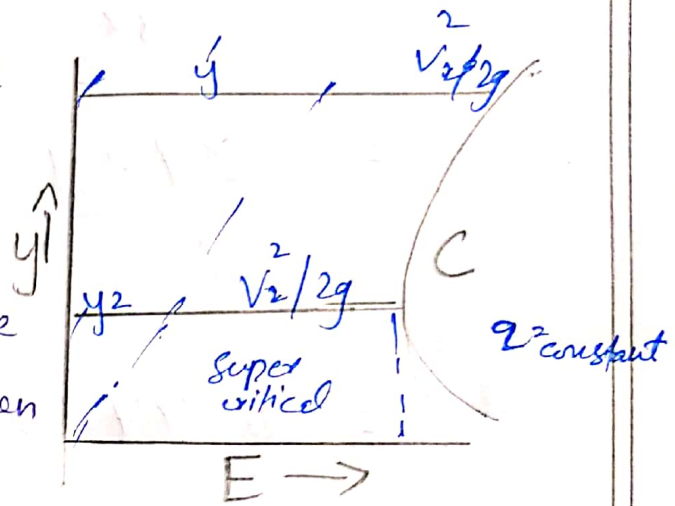 y
V₂²/2g
y↑
C
y2
V₂²/2g
q=constant
super
critical
en
E →